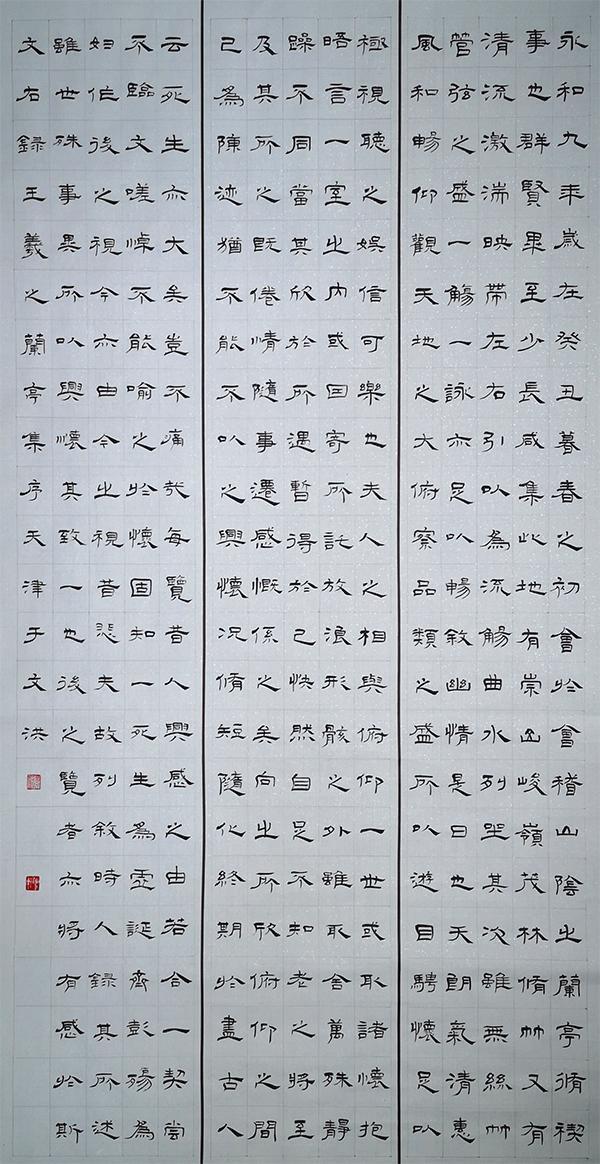 永和九年歲在癸丑暮春之初會於會稽山陰之蘭亭脩禊
事也群賢畢至少長咸集此地有崇山峻嶺茂林脩竹又有
清流激湍映帶左右引以為流觴曲水列坐其次雖無絲竹
管弦之盛一觴一詠亦足以暢敘幽情是日也天朗氣清惠
風和暢仰觀天地之大俯察品類之盛所以遊目騁懷足以
極視聽之娛信可樂也夫人之相與俯仰一世或取諸懷抱
晤言一室之內或因寄所託放浪形骸之外雖取舍萬殊靜
躁不同當其欣於所遇暫得於己快然自足不知老之將至
及其所之既倦情隨事遷感慨係之矣向之所欣俯仰之間
已為陳迹猶不能不以之興懷況脩短隨化終期於盡古人
云死生亦大矣豈不痛哉每覽昔人興感之由若合一契嘗
不臨文嗟悼不能喻之於懷固知一死生為虛誕齊彭殤為
妄作後之視今亦由今之視昔悲夫故列敘時人錄其所述
雖世殊事異所以興懷其致一也後之覽者亦將有感於斯
文右錄王羲之蘭亭集序天津于文洪